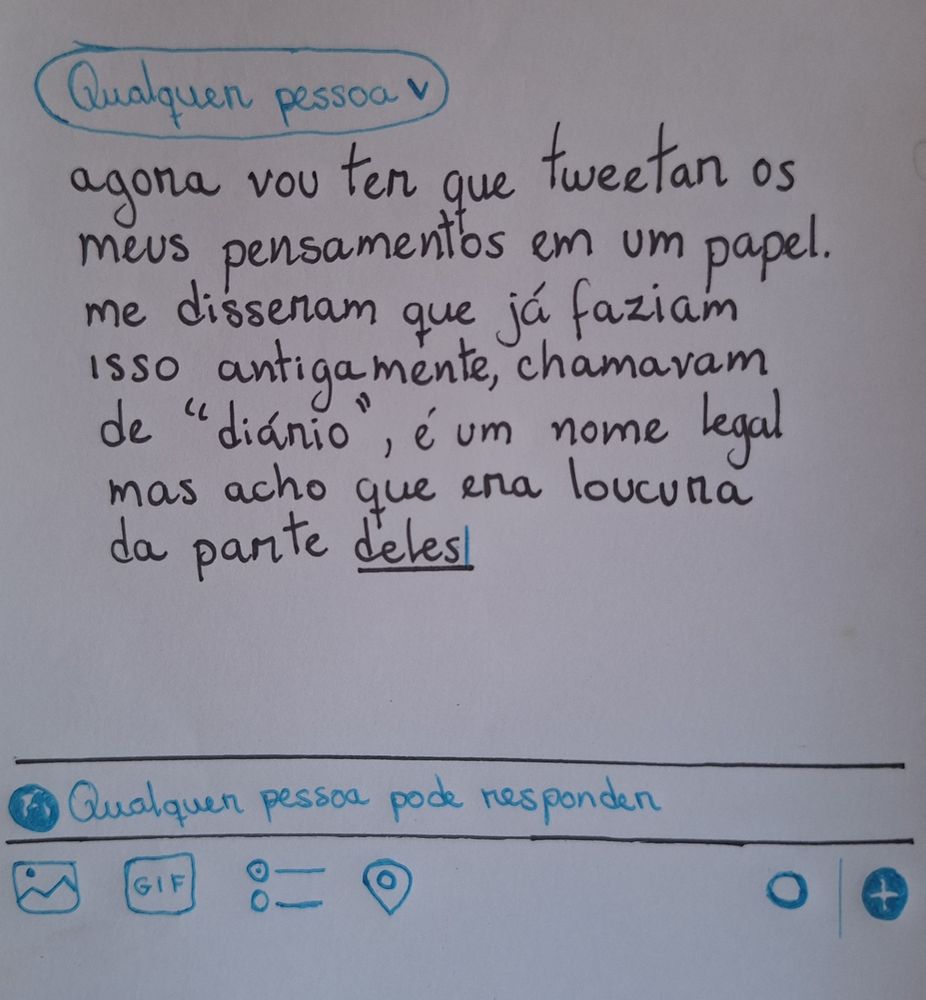 Qualquer pessoa
agora vou ter que tweetar os
meus pensamentos em um papel.
me disseram que já faziam
isso antigamente, chamavam
de “diário”, é um nome legal
mas acho que era loucura
da parte deles
Qualquer pessoa pode responder
GIF